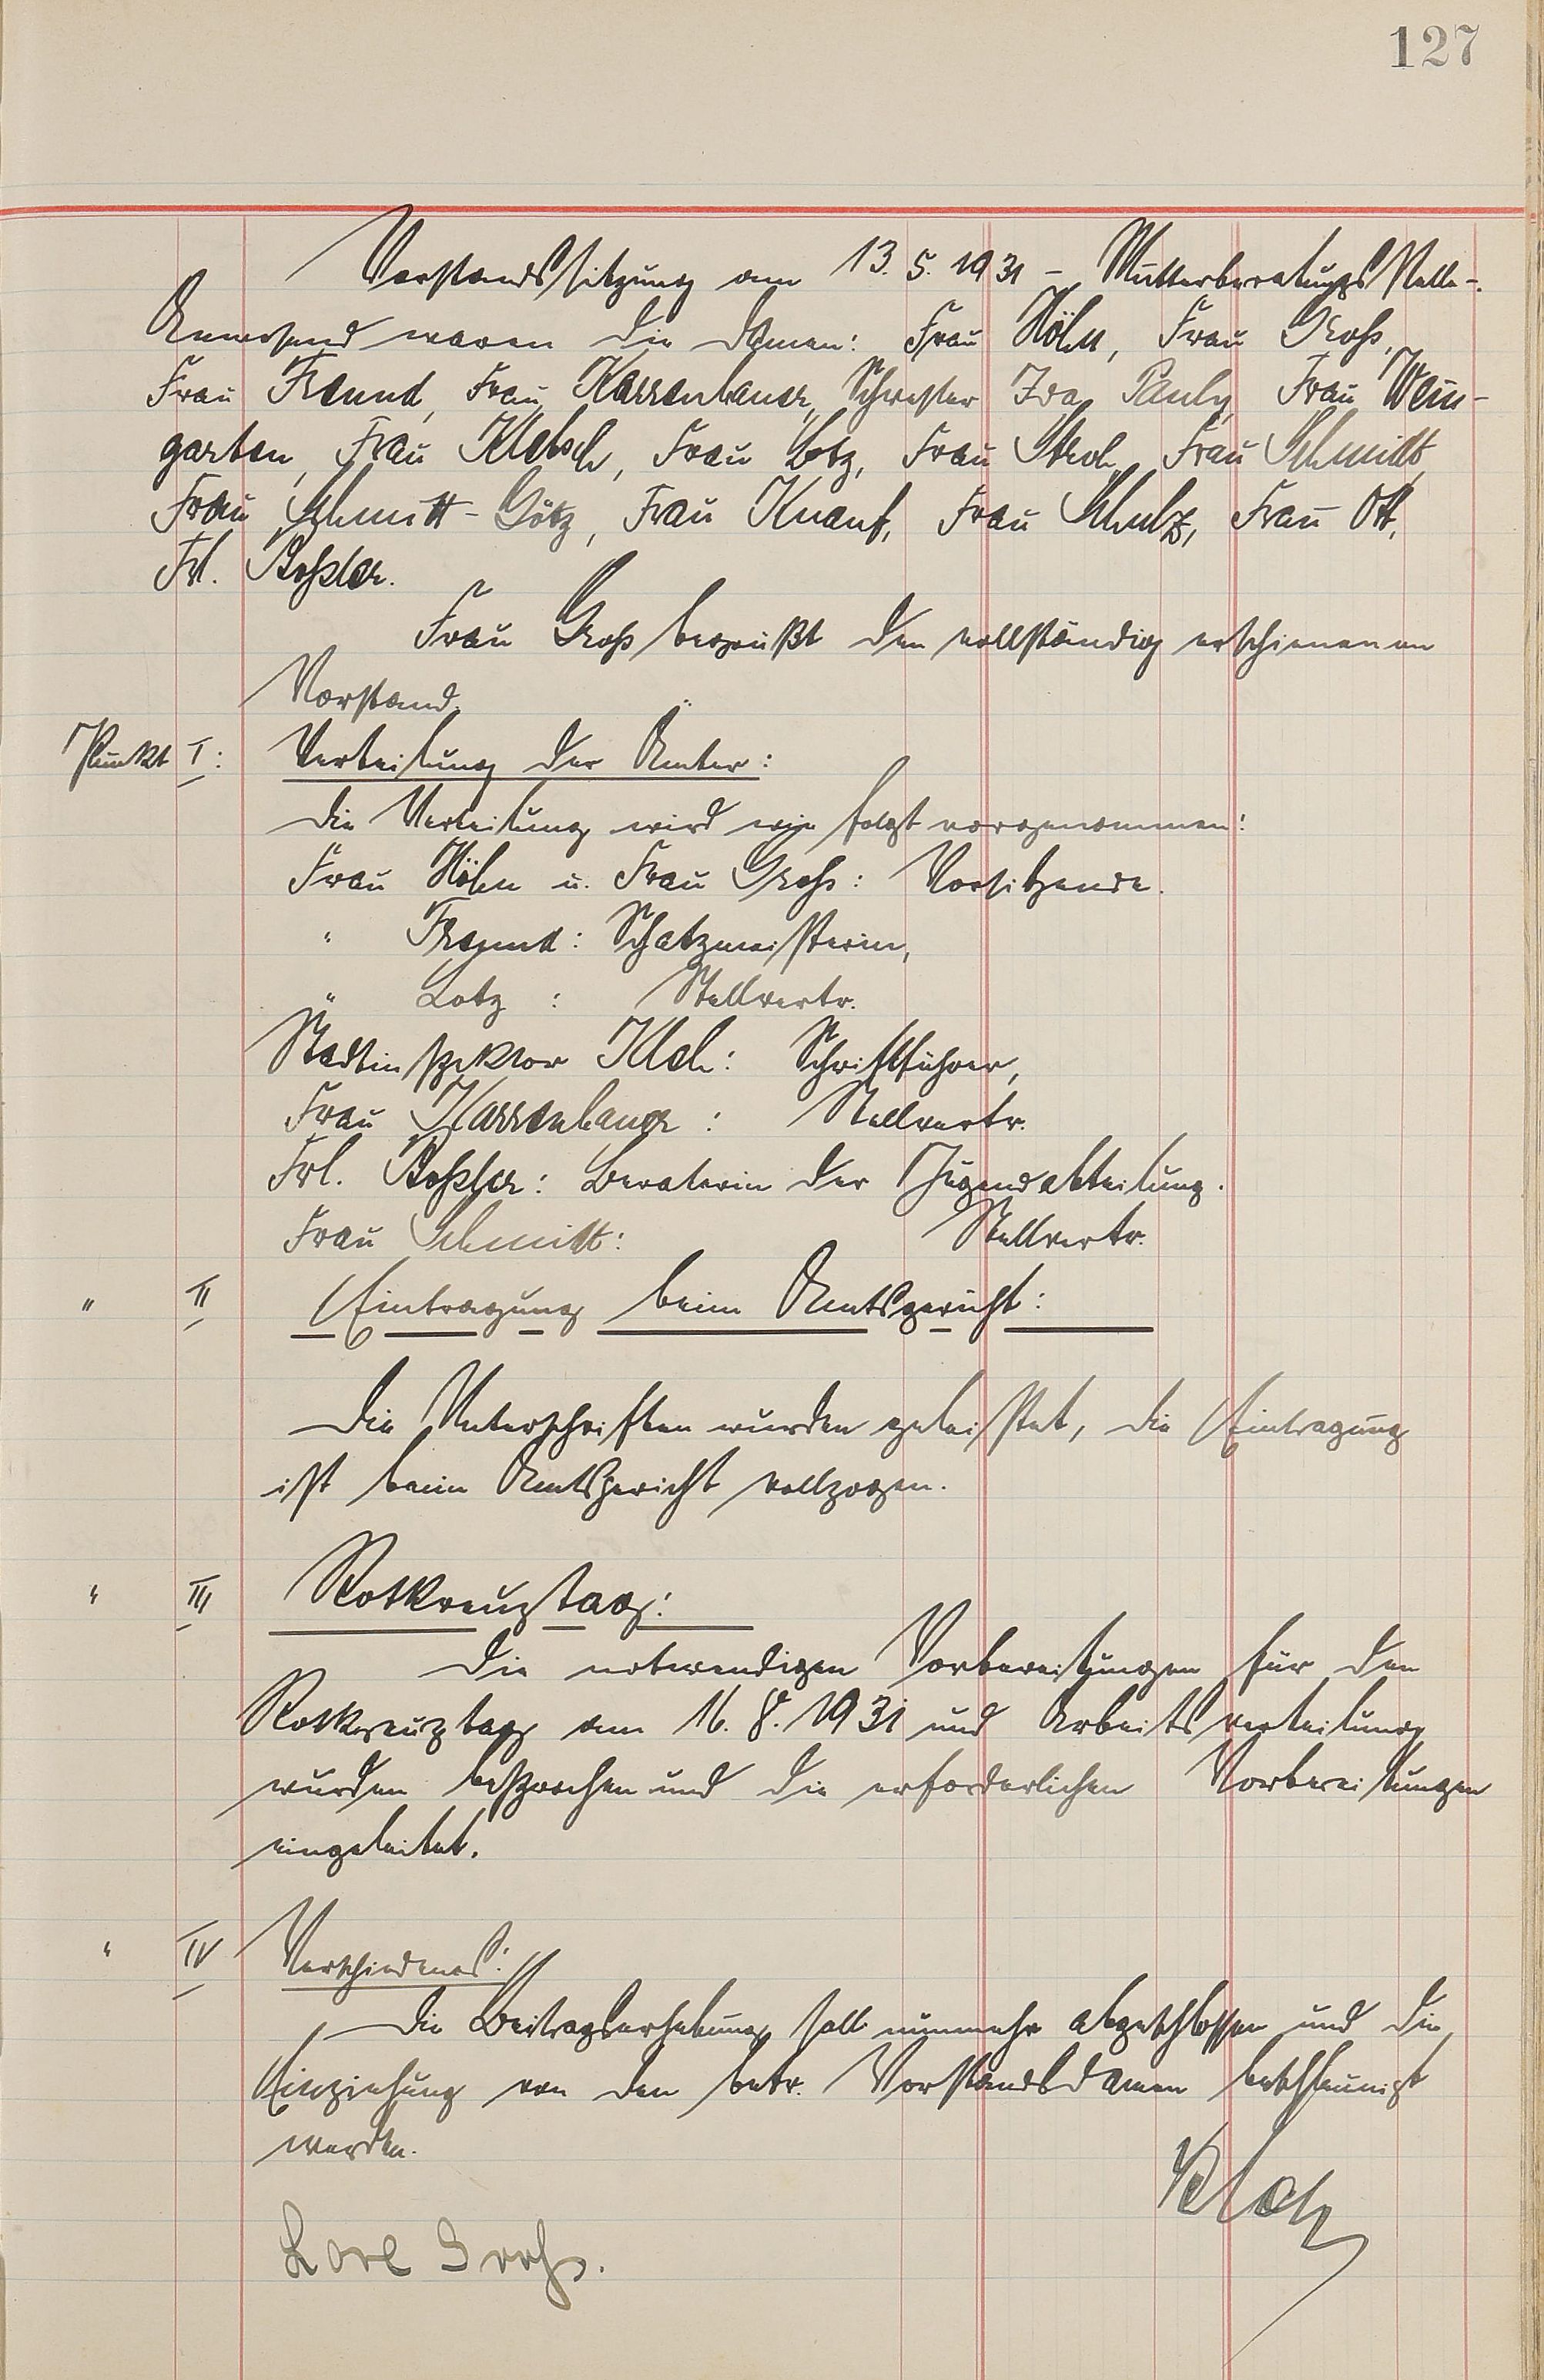 127
Vorstandssitzung am 13. 5. 1931 - Mutterberatungsstelle -.
Anwesend waren die Damen: Frau Höhn, Frau Groß,
Frau Freund, Frau Karrenbauer, Schwester Ida Pauly, Frau Wein-
garten, Frau Kletsch, Frau Lotz, Frau Stroh, Frau Schmidt,
Frau Schmitt-Götz, Frau Knauf, Frau Schulz, Frau Ott,
Frl.
Frau Groß begrüßt den vollständig erschienenen
Vorstand.
Punkt I: Verteilung der Ämter:
Die Verteilung wird wie folgt vorgenommen:
Frau Höhn u. Frau Groß: Vorsitzende.
" Freund: Schatzmeisterin,
" Lotz: Stellvertr.
Stadtinspektor: Schriftführer,
Frau Karrenbauer: Stellvertr.
Frl.: Beraterin der Jugendabteilung.
Frau Schmitt: Stellvertr.
" II Eintragung beim Amtsgericht:
Die Unterschriften wurden geleistet, die Eintragung
ist beim Amtsgericht vollzogen.
" III Rotkreuztag:
Die notwendigen Vorbereitungen für den
Rotkreuztag am 16. 8. 1931 und Arbeitsverteilung
wurden besprochen und die erforderlichen Vorbereitungen
eingeleitet.
" IV Verschiedenes:
Die Beitragserhebung soll nunmehr abgeschlossen und die
Einziehung von den betr. Vorstandsdamen beschleunigt
werden.
Lore Groß.